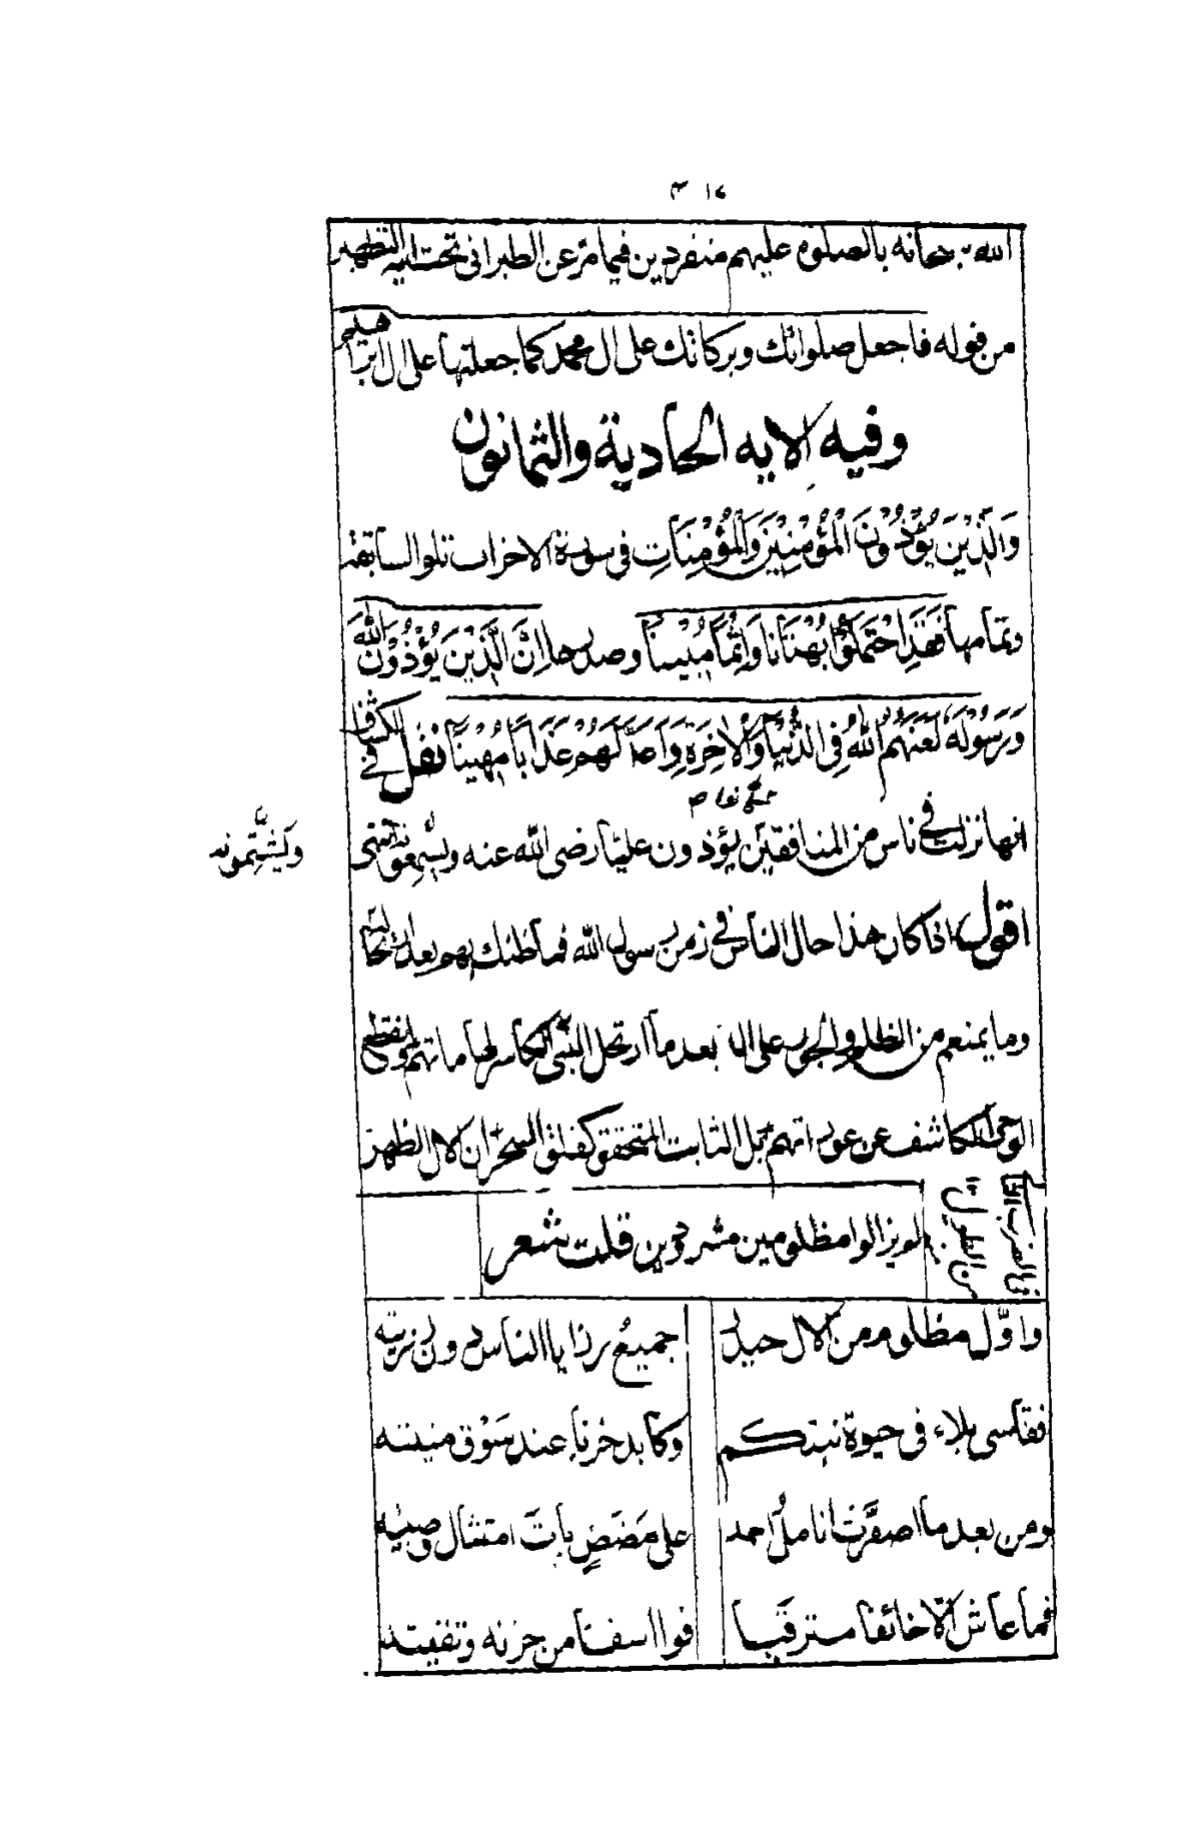 الله سبحانه بالصلوة عليهم منفردين فيما مرّ عن الطبرانى تحت اية التطهير
من قوله فاجعل صلواتك وبركاتك على ال محمد كما جعلتها على ال ابراهيم
وفيه الايه الحادية والثمانون
وَالَّذِيْنَ يُؤْذُوْنَ الْمُؤْمِنِيْنَ وَالْمُؤْمِنَاتِ فى سورة الاحزاب تلو السابقة
وتمامها فَقَدِ احْتَمَلُوْا بُهْتَانًا وَاِثْمًا مُبِيْنًا وصدرها اِنَّ الَّذِيْنَ يُؤْذُوْنَ اللهَ
وَرَسُوْلَهُ لَعَنَهُمُ اللهُ فِى الدُّنْيَا وَالْاٰخِرَةِ وَاَعَدَّ لَهُمْ عَذَابًا مُهِيْنًا نقل فى الكشاف
انها نزلت فى ناس من المنافقين يؤذون عليًا رضى الله عنه ويسمعونه انتهى
ويَشْتِمونه
اقول اذا كان هذا حال الناس فى زمن رسول الله فما ظنك بهم بعد ارتحاله
وما يمنعهم من الظلم والجور على ال بعد ما ارتحل النبى الكاسر لحاماتهم وانقطع
الوحى الكاشف عن عوراتهم بل الثابت المتحقق كفلق السحر ان الال الطهر
لم يزالوا مظلومين مشردين قلت شعر
من الطويل
واوّل مظلوم من الال حيدر
جميعُ رزايا الناس دون رزيته
فقاسى بلاء فى حيوة نبيكم
وكابد حزنا عند سَوْق منيته
ومن بعد ما اصفرَّت اناملُ احمد
على مَضَضٍ باتَ امتثال وصيّه
فما عاش الّا خائفا مترقبا
فوا اسفا من حزنه وتقيته